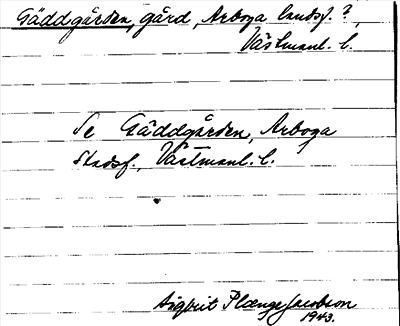 Gäddgården, gård, Arboga landsf.?,
Västmanl. l.
Se Gäddgården, Arboga
Stadsf., Västmanl. l.
Sigbrit Plænge Jacobson
1943.